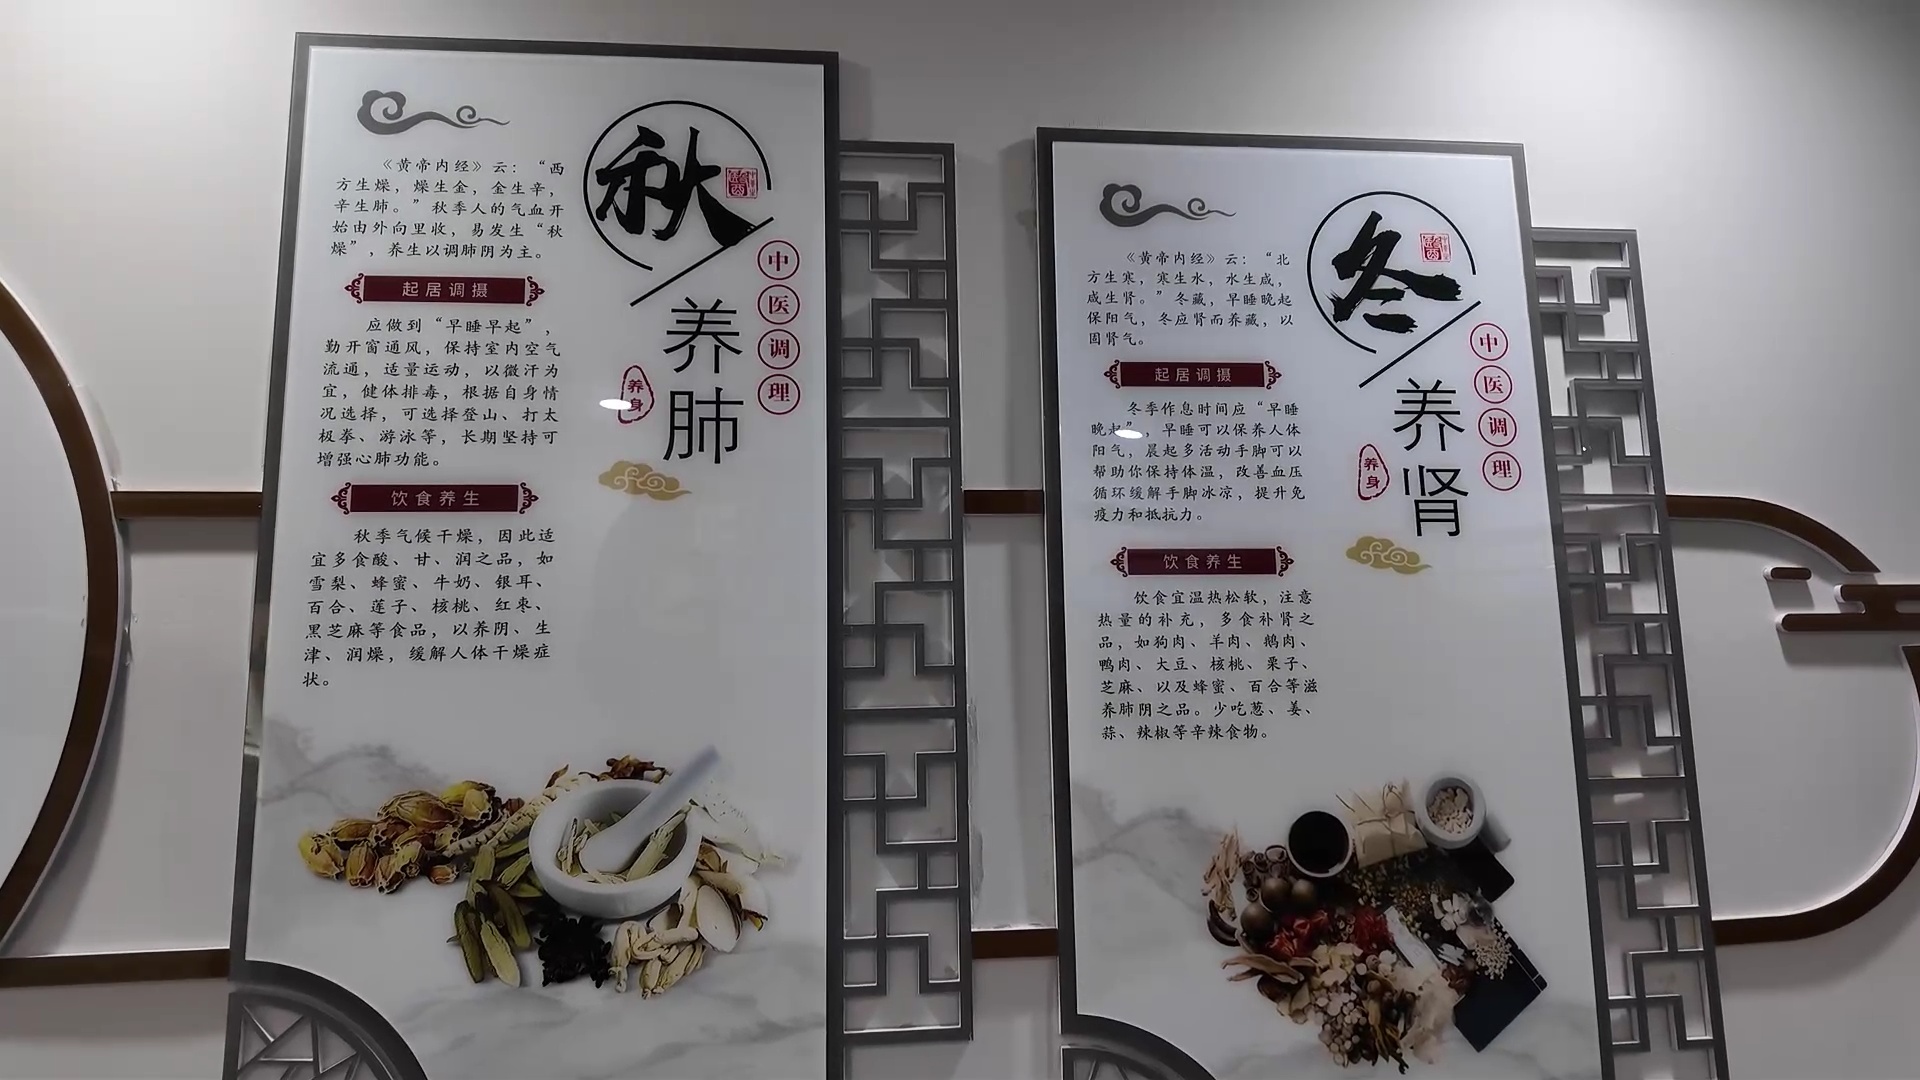 《黄帝内经》云：“西
方生燥，燥生金，金生辛，
辛生肺。”秋季人的气血开
始由外向里收，易发生“秋
燥”，养生以调肺阴为主。
起居调摄
应做到“早睡早起”，
勤开窗通风，保持室内空气
流通，适量运动，以微汗为
宜，健体排毒，根据自身情
况选择，可选择登山、打太
极拳、游泳等，长期坚持可
增强心肺功能。
饮食养生
秋季气候干燥，因此适
宜多食酸、甘、润之品，如
雪梨、蜂蜜、牛奶、银耳、
百合、莲子、核桃、红枣、
黑芝麻等食品，以养阴、生
津、润燥，缓解人体干燥症
状。
秋
养肺
中医调理
养身
《黄帝内经》云：“北
方生寒，寒生水，水生咸，
咸生肾。”冬藏，早睡晚起
保阳气，冬应肾而养藏，以
固肾气。
起居调摄
冬季作息时间应“早睡
晚起”，早睡可以保养人体
阳气，晨起多活动手脚可以
帮助你保持体温，改善血压
循环缓解手脚冰凉，提升免
疫力和抵抗力。
饮食养生
饮食宜温热松软，注意
热量的补充，多食补肾之
品，如狗肉、羊肉、鹅肉、
鸭肉、大豆、核桃、栗子、
芝麻、以及蜂蜜、百合等滋
养肺阴之品。少吃葱、姜、
蒜、辣椒等辛辣食物。
冬
养肾
中医调理
养身